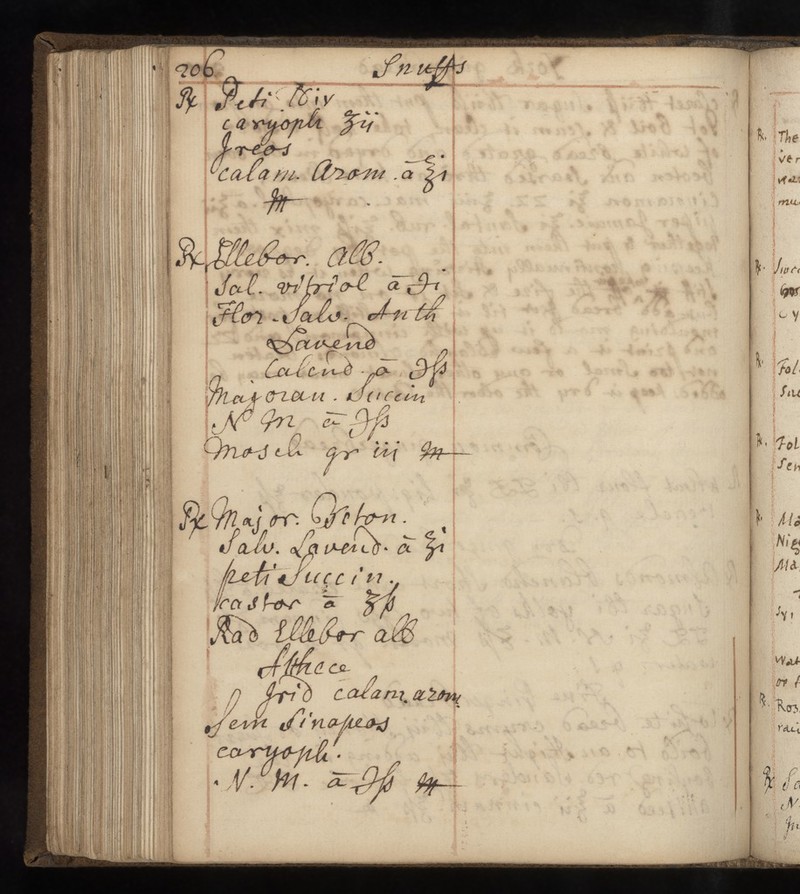 206 Snuffs
℞ Peti ℔iv
caryoph ʒij
Jreos
calam. Arom. ā ʒi
m
℞ Ellebor. Alb.
Sal. vitriol ā ℈i
Flor. Salv. Anth
Lavend
Calend. ā ℈ß
Majoran. Succin
N M ā ℈ß
Mosch gr iii m
℞ Major. Beton.
Salv. Lavend. ā ʒi
peti Succin.
Castor ā ʒß
Rad Ellebor alb
Jrid calam. arom
Sem Sinapeos
caryoph.
N. M. ā ℈ß m
℞. The
ver
mu
℞.
℞. Fol
℞. Fol
Sem
℞. Ma
Nig
Ma
Wat
or
℞. Ros
℞ Sa
N